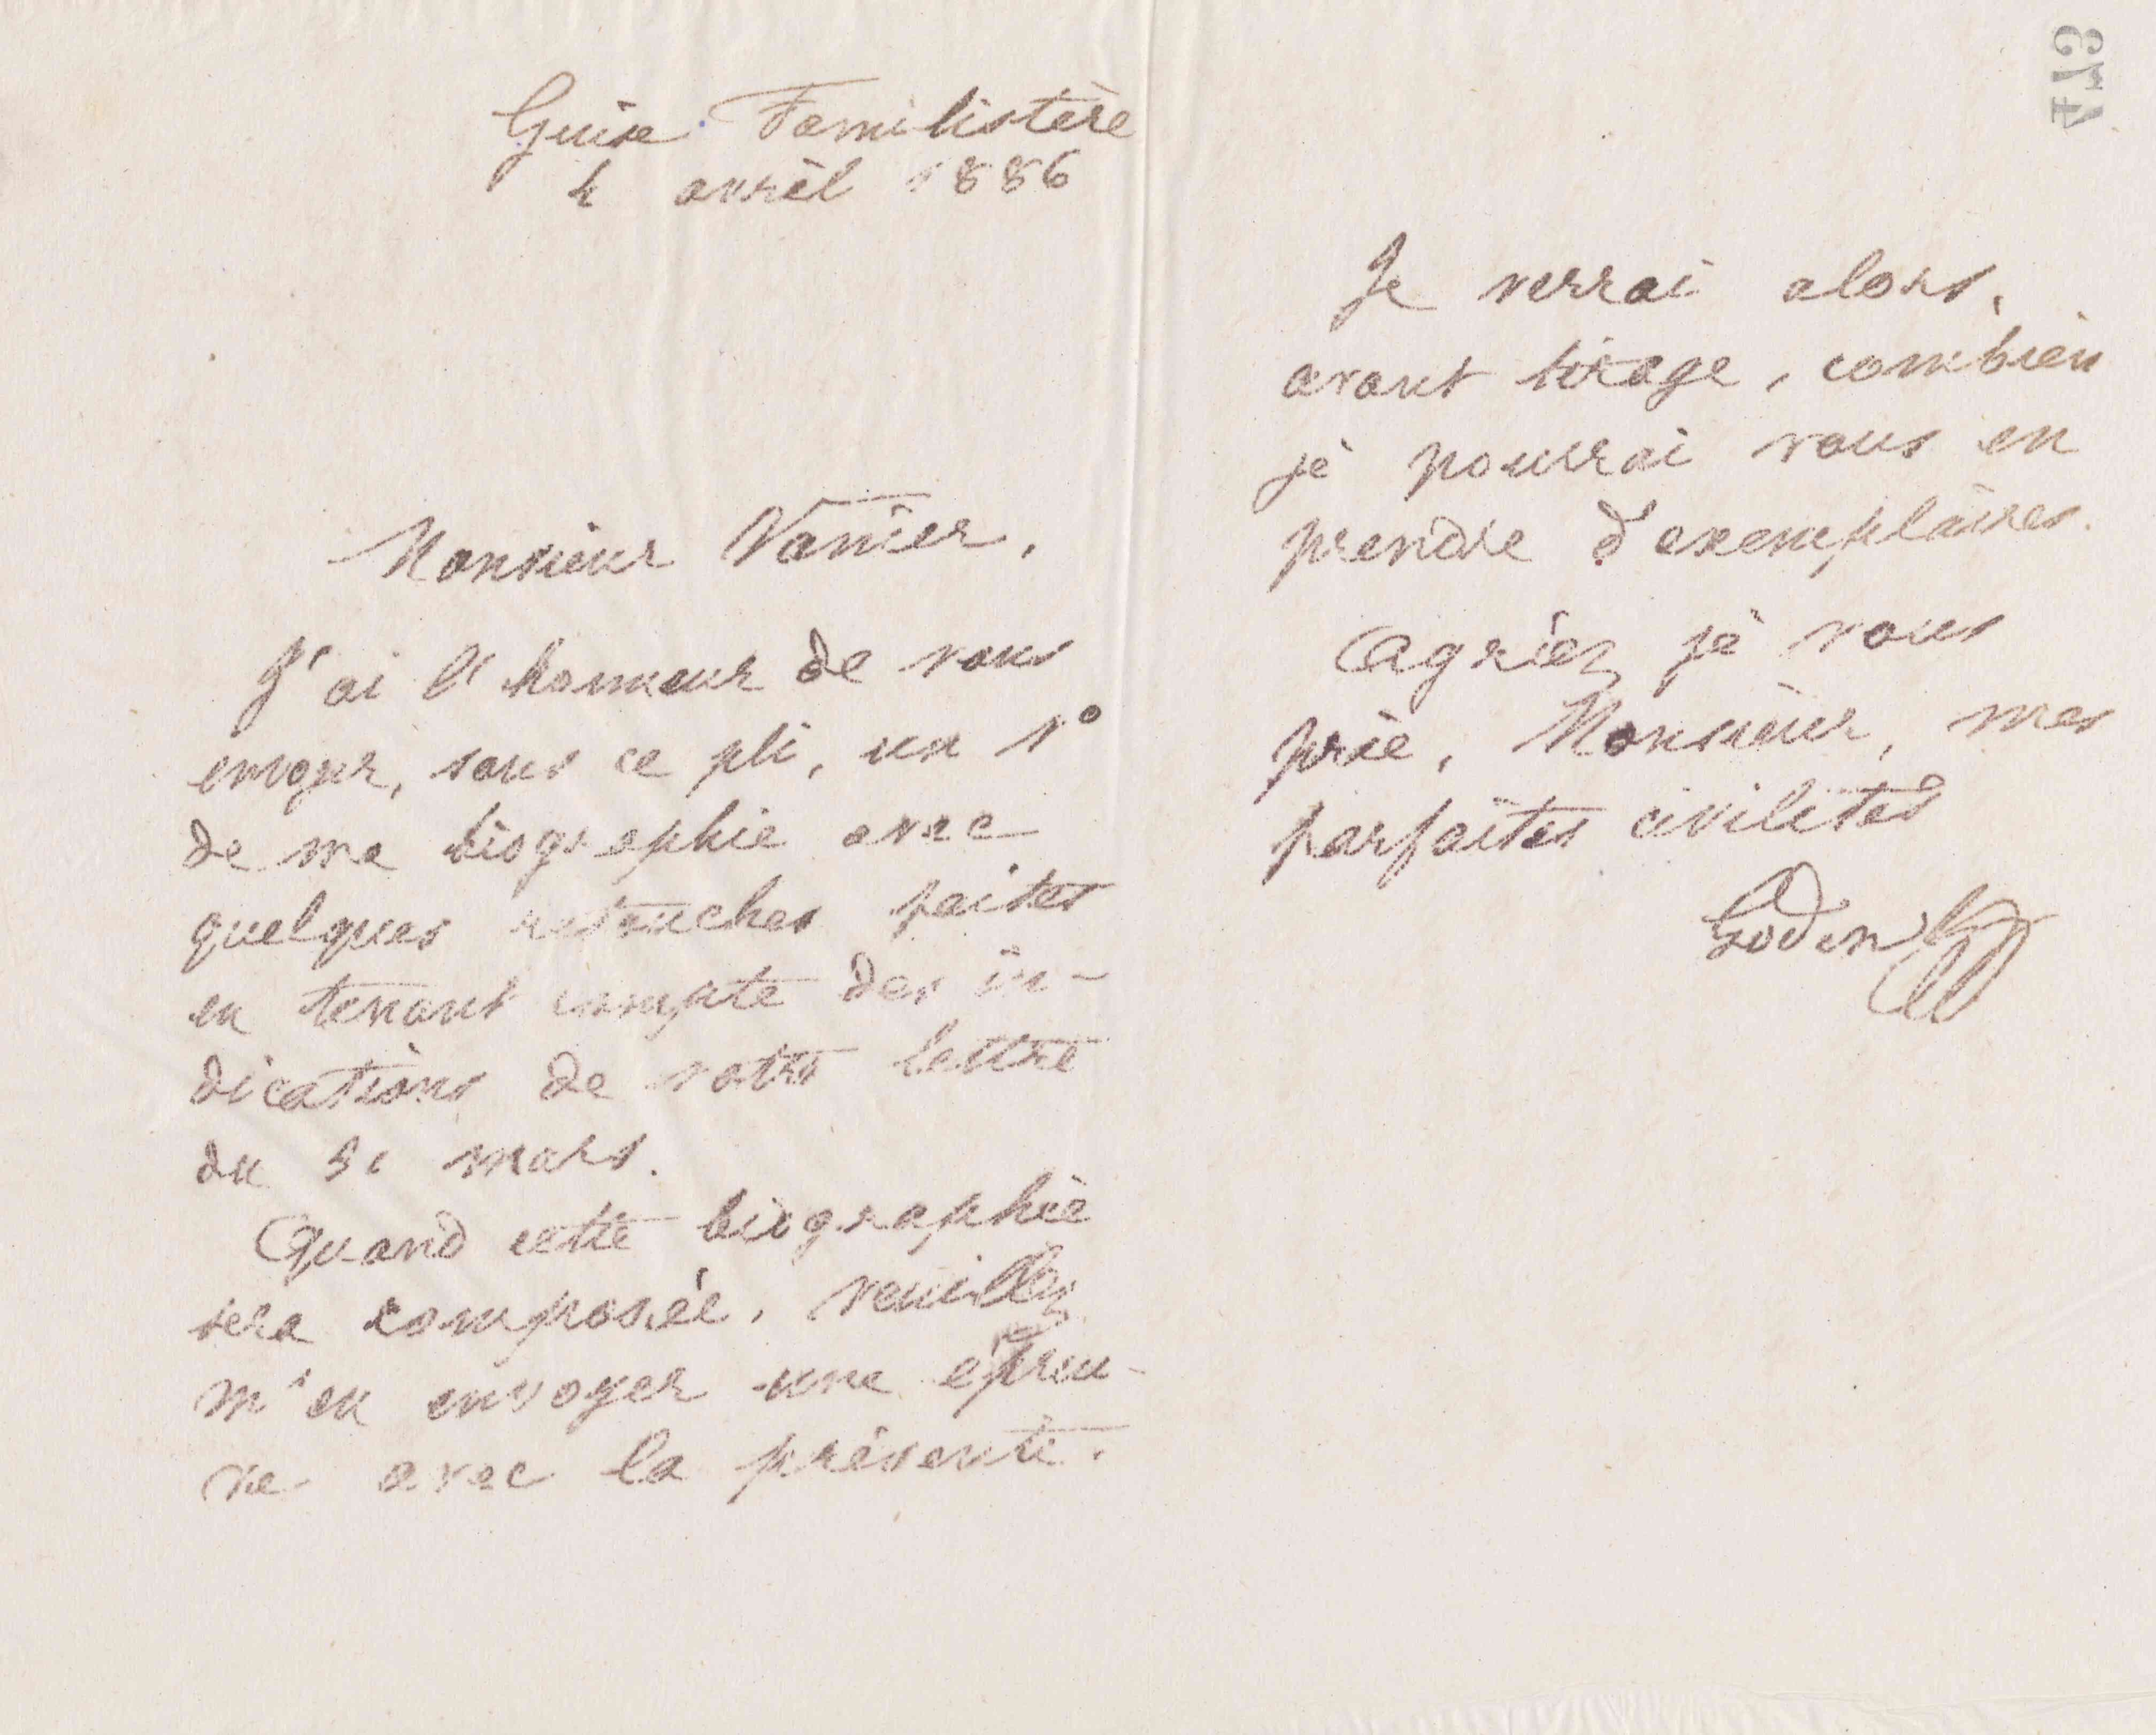 Guise Familistère
4 avril 1886
Monsieur Vanier,
J'ai l'honneur de vous
envoyer, sous ce pli, un n°
de ma biographie avec
quelques retouches faites
en tenant compte des in-
dications de votre lettre
du 31 mars.
Quand cette biographie
sera composée, veuillez
m'en envoyer une épreu-
ve avec la présente.
473
Je verrai alors,
avant tirage, combien
je pourrai vous en
prendre d'exemplaires.
Agréez je vous
prie, Monsieur, mes
parfaites civilités
Godin